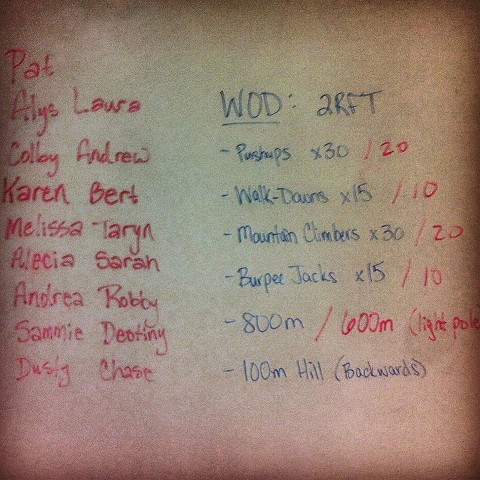 Pat
Alys Laura
Colby Andrew
Karen Bert
Melissa Taryn
Alecia Sarah
Andrea Robby
Sammie Destiny
Dusty Chase
WOD: 2RFT
- Pushups x30 / 20
- Walk-Downs x15 / 10
- Mountain Climbers x30 / 20
- Burpee Jacks x15 / 10
- 800m / 600m (light pole
- 100m Hill (Backwards)